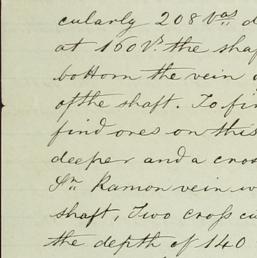 cularly 208 Vas d
at 160 Vs the shaf
bottom the vein
of the shaft. To fin
find ores on this
deeper and a cros
Sn Ramon vein w
shaft, Two cross cu
the depth of 140